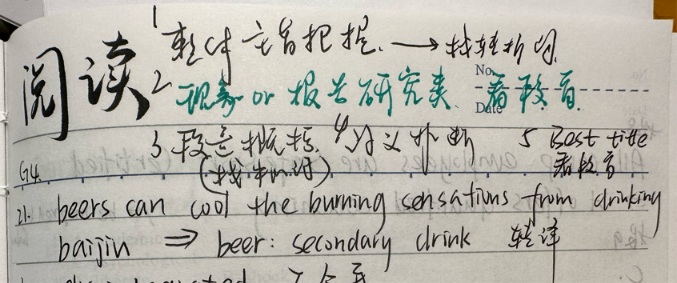 阅读
1 整体主旨把握. → 找转折词.
2 现象 or 报告研究类. 看段首.
No.
Date
3. 段意概括. 4 词义推断 5 Best title
(找中心词). 看段首
G4.
21. beers can cool the burning sensations from drinking
baijiu ⇒ beer: secondary drink 转译